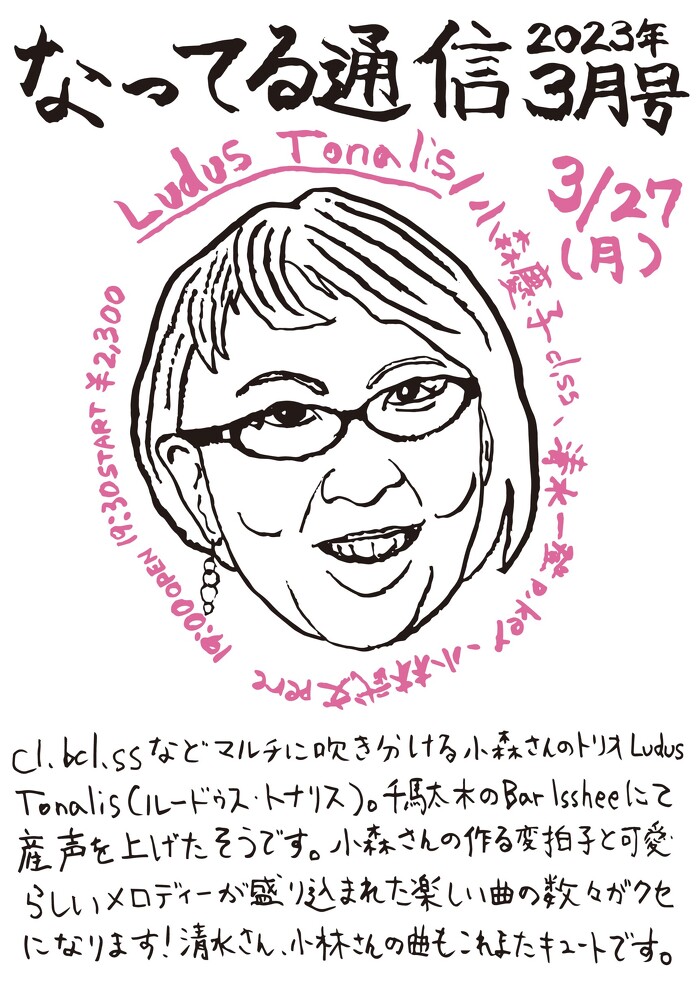 なってる通信 2023年
3月号
3/27
(月)
Ludus Tonalis/小森慶子cl.ss、清水一登p.key、小林武文perc
19:00OPEN 19:30START ¥2,300
cl.bcl.ssなどマルチに吹き分ける小森さんのトリオLudus
Tonalis(ルードゥス・トナリス)。千駄木のBar Issheeにて
産声を上げたそうです。小森さんの作る変拍子と可愛
らしいメロディーが盛り込まれた楽しい曲の数々がクセ
になります!清水さん、小林さんの曲もこれまたキュートです。